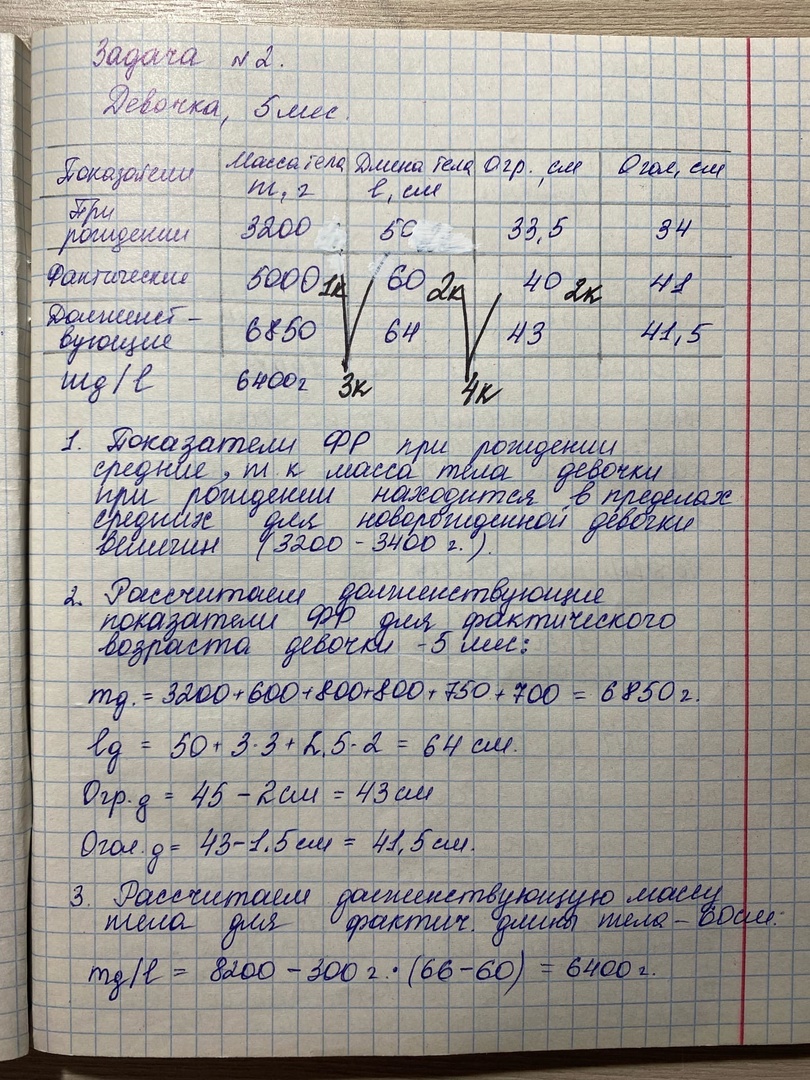 Задача №2.
Девочка, 5 мес.
Показатели Масса тела m, г Длина тела l, см Огр., см Огол, см
При рождении 3200 50 33,5 34
Фактические 5000 1к 60 2к 40 2к 41
Долженст-вующие 6850 64 43 41,5
mд/l 6400г 3к 4к
1. Показатели ФР при рождении
средние, т.к масса тела девочки
при рождении находится в пределах
средних для новорожденной девочки
величин (3200 - 3400 г.).
2. Рассчитаем долженствующие
показатели ФР для фактического
возраста девочки - 5 мес:
mд. = 3200+600+800+800+750+700 = 6850 г.
lд = 50 + 3·3 + 2,5·2 = 64 см.
Огр.д = 45 - 2см = 43 см
Огол.д = 43-1.5см = 41,5см.
3. Рассчитаем долженствующую массу
тела для фактич. длины тела - 60см:
mд/l = 8200 - 300 г.·(66-60) = 6400г.